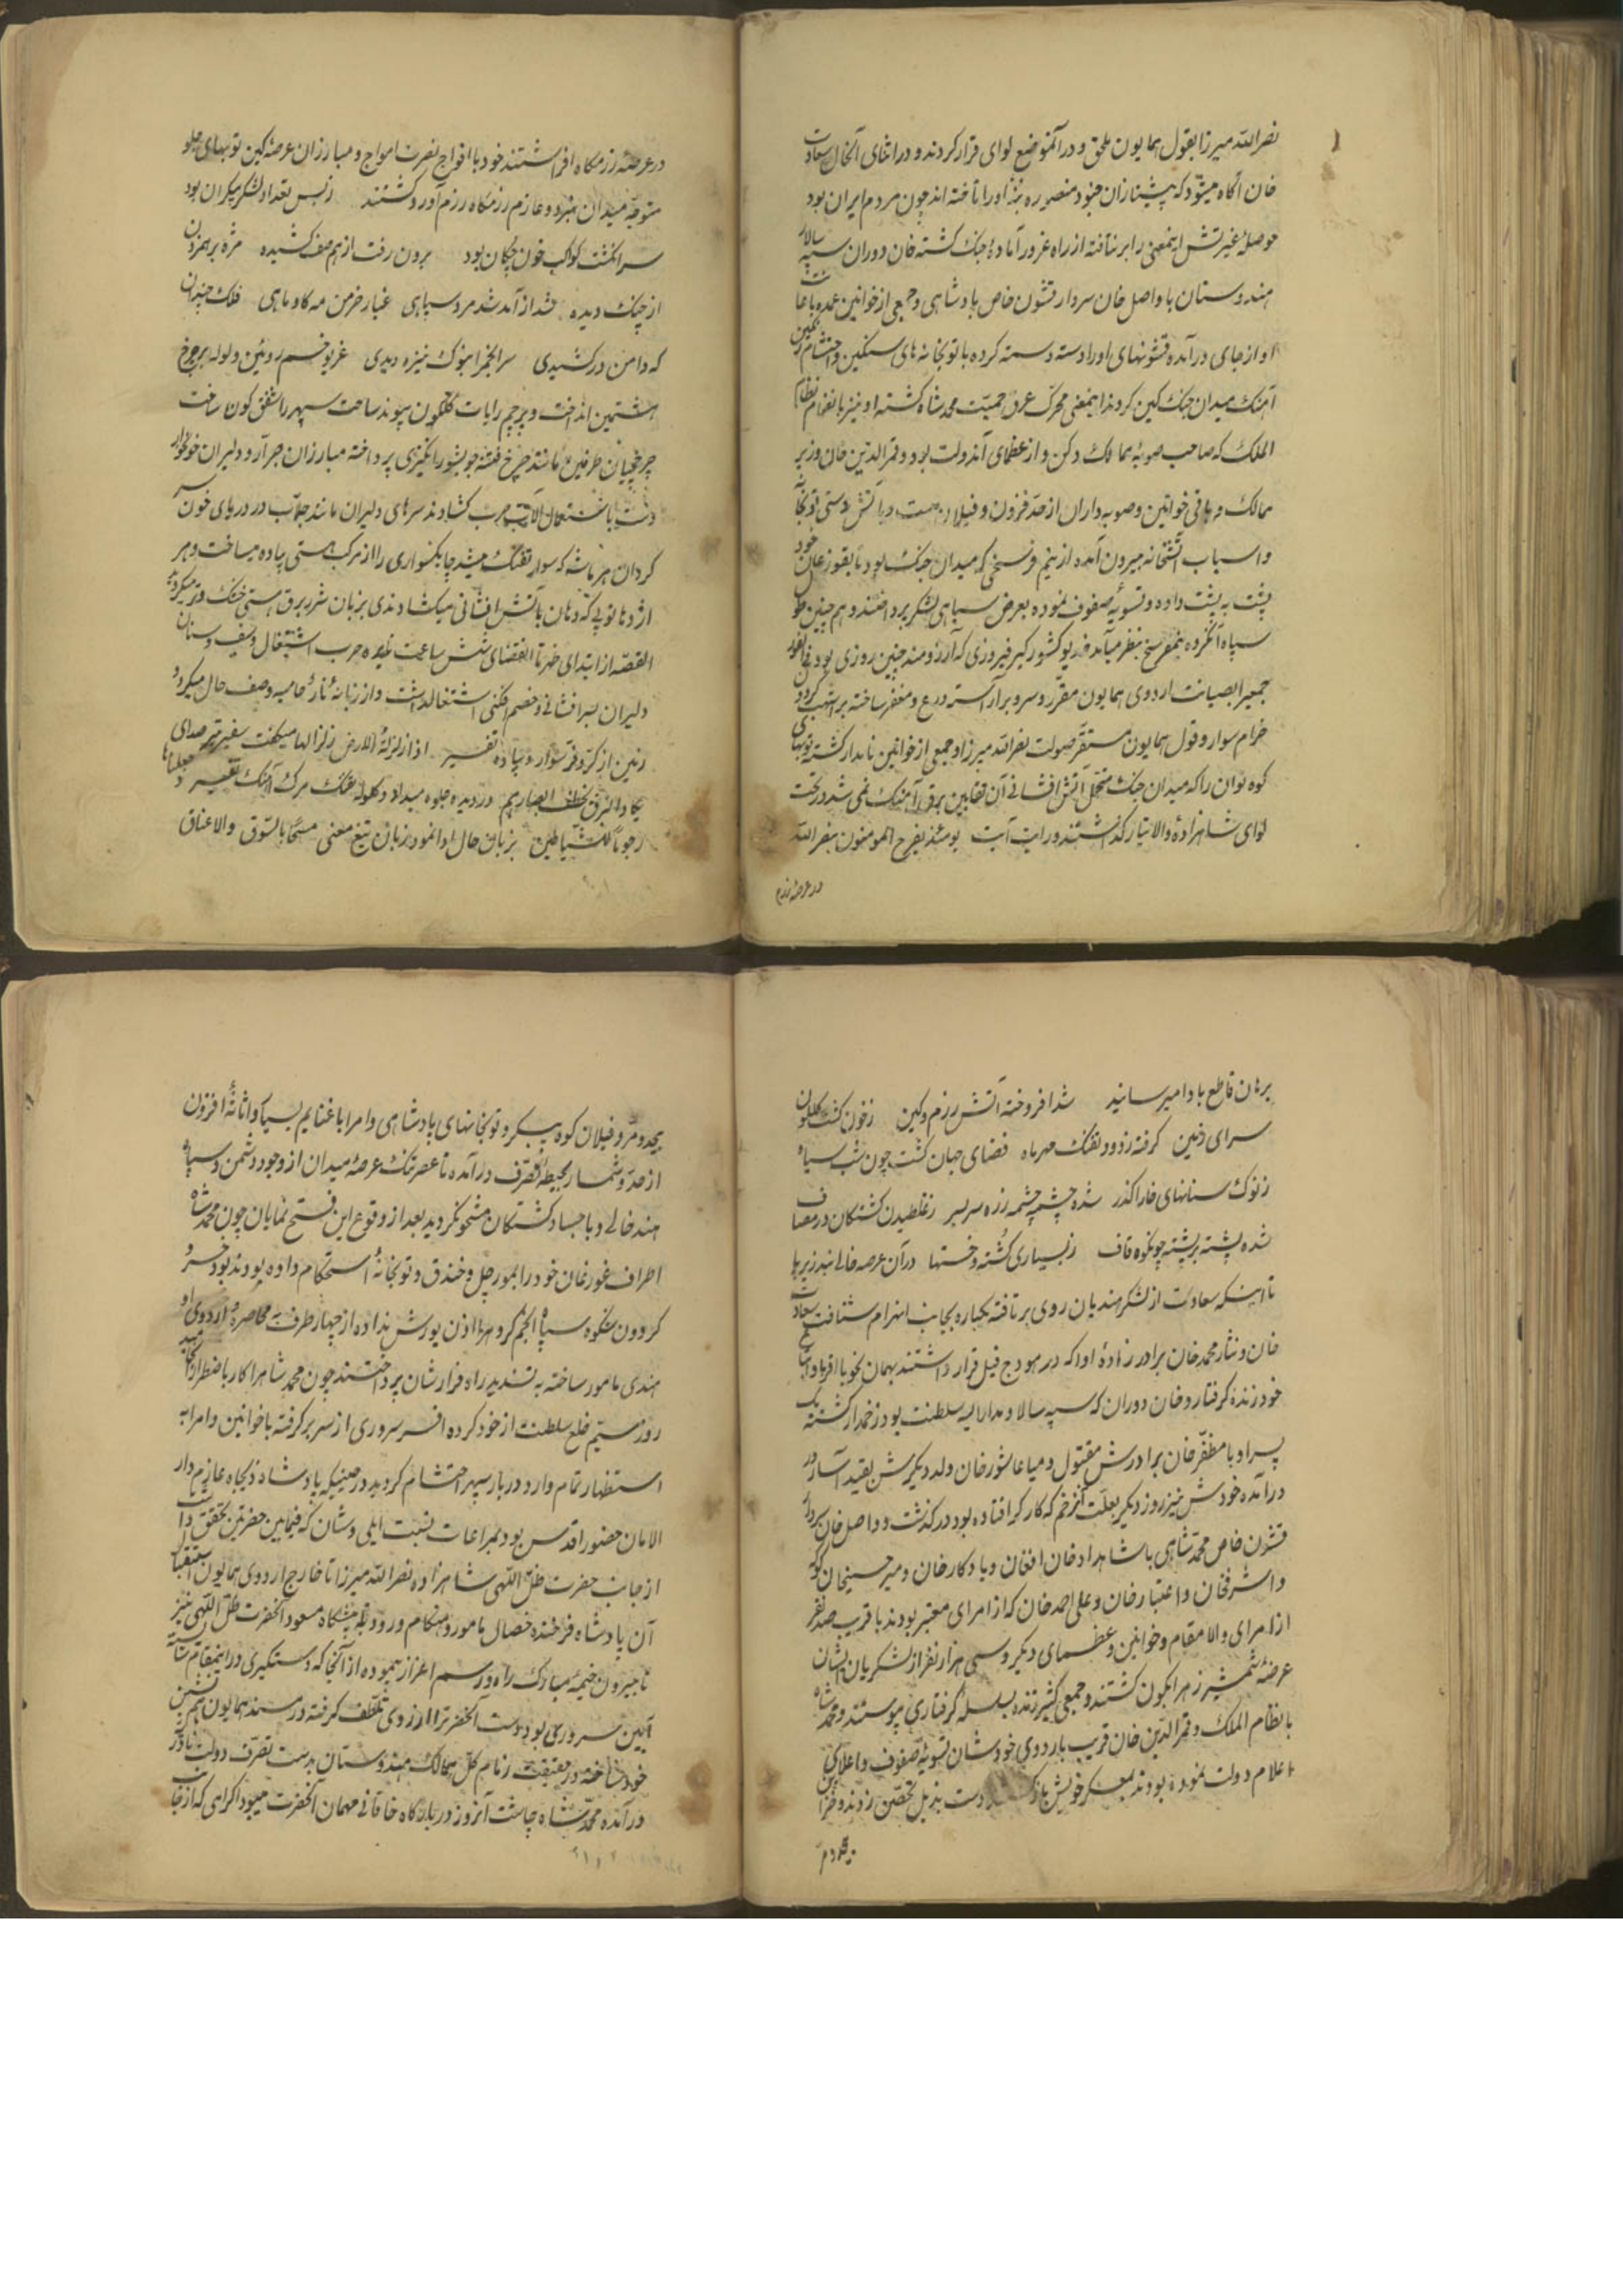 نصرالله میرزا بقول همایون ملحق و در آنموضع لوای قرار کردند و در اثنای آنحال سعادت
خان آگاه میشود که پیشتازان جنود منصوره بنهٔ اورا تاخته اند چون مردم ایران بود
حوصلهٔ غیرتش اینمعنی را بر نتافته از راه غرور آمادهٔ جنک کشته خان دوران سپه سالار
هندوستان با واصل خان سردار قشون خاص پادشاهی و جمعی از خوانین عمده باعانت
او از جای درآمده قشونهای اورا دسته دسته کرده با توپخانه های سنکین و احتشام رنکین
آهنک میدان جنک کین کردند اینمعنی محرک عرق حمیت محمد شاه کشته او نیز بانضمام نظام
الملک که صاحب صوبهٔ ممالک دکن و از عظمای آندولت بود و قمرالدین خان وزیر
ممالک و باقی خوانین و صوبه داران از حد فزون و فیلان مست و آتش دستی توپخانه
و اسباب آتشخانه بیرون آمده از نیم فرسخی که میدان جنک بود تا بقورغان خود
پشت به پشت داده و تسویهٔ صفوف نموده بعرض سپاهی لشکر پرداختند و هم چنین طول
سپاه آنکروه بنیمفرسخ بنظر میآمد خدیو کشور کیر فیروزی که آرزومند چنین روزی بود فی الفور
جمعیرا بصیانت اردوی همایون مقرر و سر و بر آراسته درع و مغفر ساخته بر اشهب کردون
خرام سوار و قول همایون مستقر صولت نصرالله میرزا و جمعی از خوانین نامدار کشته توپهای
کوه توان را که میدان جنک متحمل آتش افشانی آن ثعابین برق آهنک نمی شد در تحت
لوای شاهزادهٔ والاتبار کذاشتند و رایات آیت یومئذ یفرح المومنون بنصر الله
در عرصهٔ رزم
در عرصهٔ رزمکاه افراشتند خود با افواج نصرت امواج و مبارزان عرصهٔ کین توپهای جلو
متوجه میدان نبرد و عازم رزمکاه رزم آور کشتند زبس تعداد لشکر بیکران بود
سر انکشت کواکب خون چکان بود برون رفت از هم صف کشیده مژه بر همزدن
از چنک دیده شد از آمد شد مرد سپاهی غبار خرمن مه کاو ماهی فلک چندان
که دامن در کشیدی سر انجم را بنوک نیزه دیدی غریو خم روئین ولوله بر چرخ
هشتمین انداخت و پرچم رایات کلکون پیوند ساحت سپهر را شفق کون ساخت
چرخچیان طرفین مانند چرخ فتنه جو بشور انکیزی پرداخته مبارزان جرار و دلیران خونخوار
دست باشتعال آلات حرب کشادند سرهای دلیران مانند حباب در دریای خون
کردان هر ماشه که سوار تفنک میشد چابکسواری را از مرکب هستی پیاده میساخت و هر
اژدها توپی که دهان بآتش افشانی میکشاد ندی بزبان شرر برق هستی خشک و تر میکردید
القصه از ابتدای ظهر تا انقضای شش ساعت نایره حرب اشتعال و سیف و سنان
دلیران بسر افشانی و خصم افکنی اشتغالداشت و از زبانهٔ نارٌ حامیه وصف حال میکرد
زمین از کر و فر سوار و پیاده تفسیر اذا زلزلة الارض زلزالها میکفت سفیر تیر صدای
یکاد البرق یخطف ابصارهم در دیده جلوه میداد و کلوله تفنک مرک آهنک تفسیر و جعلناها
رجوماً للشیاطین بزبان حال ادا نمود زبان تیغ معنی مسحاً بالسوق والاعناق
برهان قاطع بادا میرسانید شد افروخته آتش رزم و کین زخون کشت کلکون
سرای زمین کرفته زدود تفنک مهر ماه فضای جهان کشت چون شب سیاه
زنوک سنانهای خارا کذر شده چشم چشمه زره سربسر زغلطیدن کشتکان در مصاف
شده پشته بر پشته چون کوه قاف زبسیاری کُشته و خستها در آن عرصه خالی نبد زیر پا
تا اینکه سعادت از لشکر هندیان روی بر تافته یکباره بجانب انهزام شتافت سعادت
خان و نثار محمد خان برادر زادهٔ او را که در هودج فیل قرار داشتند بهمان نحو با اقربا و اتباع
خود زنده کرفتار و خان دوران که سپه سالار و مدار الیه سلطنت بود زخمدار کشته یک
پسر او با مظفر خان برادرش مقتول و میا عاشور خان ولد دیکرش بقید اسار در
درآمده خودش نیز روز دیکر بعلت آنزخم که کارکر افتاده بود در کذشت و واصل خان سردار
قشون خاص محمد شاهی با شاهداد خان افغان و یادکار خان و میر حسینخان کوکه
و اشرفخان و اعتبار خان و علی احمد خان که از امرای معتبر بودند با قریب صد نفر
از امرای والا مقام و خوانین و عظمای دیکر و سی هزار نفر از لشکریان ایشان
عرضهٔ شمشیر زهر ابکون کشتند و جمعی کثیر زنده بسلسلهٔ کرفتاری پیوستند و محمد شاه
با نظام الملک و قمرالدین خان قریب باردوی خودشان تسویهٔ صفوف و اعلای
اعلام دولت نموده بودند بمعسکر خویش باز دست بذیل تحصن زدند و خزاین
بیحد و مر
بیحد و مر و فیلان کوه پیکر و توپخانهای پادشاهی و امرا با غنایم بسیار و اثاثهٔ افزون
از حد و شمار بحیطهٔ تصرف درآمده تا عصر تنک عرصهٔ میدان از وجود دشمن و سپاه
هند خالی و باجساد کشتکان مشحون کردید بعد از وقوع این فتح نمایان چون محمد شاه
اطراف غورغان خود را بمورچل و خندق و توپخانهٔ استحکام داده بودند بود خسرو
کردون شکوه سپاه انجم کروه را اذن یورش نداده از چهار طرف به محاصرهٔ اردوی او
هندی مامور ساخته به تشدید راه فرارشان پرداختند چون محمد شاهرا کار باضطرار انجامید
روز سیم خلع سلطنت از خود کرده افسر سروری از سر برکرفته با خوانین و امرا به
استظهار تمام وارد دربار سپهر احتشام کردید در حینیکه پادشاه ذیجاه عازم دار
الامان حضور اقدس بود بمراعات نسبت ایلی و شان که فیمابین حضرتین تحقق داشت
از جانب حضرت ظل اللهی شاهزاده نصرالله میرزا تا خارج اردوی همایون استقبال
آن پادشاه فرخنده خصال مامور و هنکام ورود به پیشکاه مسعود آنحضرت ظل اللهی نیز
تا بیرون خیمهٔ مبارک راه و رسم اعزاز پیموده از آنجا که دستکیری در اینمقام شایسته
آیین سروری بود دست آنحضرترا از روی تلطف کرفته در مسند همایون هم نشین
خود ساخته در حقیقت زمام کل ممالک هندوستان بدست تصرف دولت نادری
درآمده محمد شاه چاشت آنروز در بارکاه خاقانی مهمان آنحضرت میبود اکرامی که از جانب